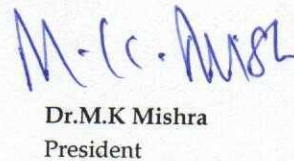 M.K.Mish
Dr.M.K Mishra
President